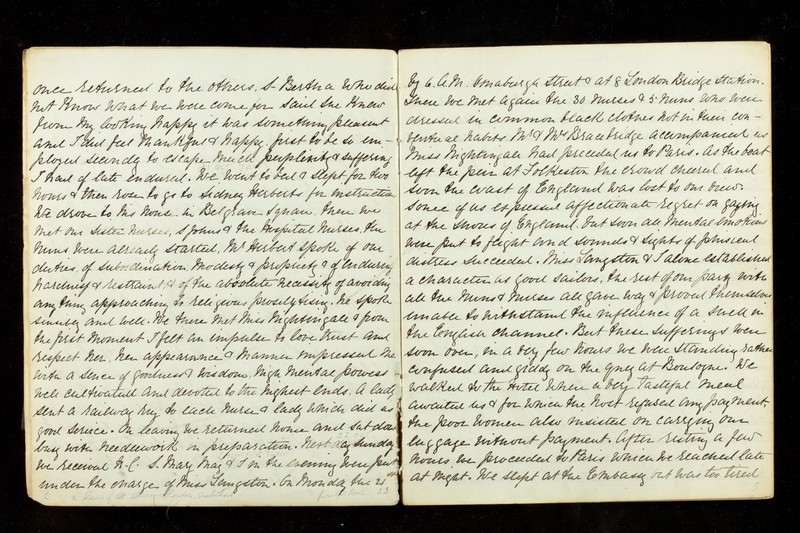 once returned to the others. S. Bertha who did
not know what we were come for said she knew
from my looking happy it was something pleasant
and I did feel thankful & happy, first to be so em-
ployed secondly to escape much perplexity & suffering
I had of late endured. We went to bed & slept for two
hours & then rose to go to Sidney Herberts for instruction
We drove to his house in Belgrave Square. There we
met our Sister Nurses, S Johns & the Hospital Nurses, the
Nuns were already started. Mr Herbert spoke of our
duties, of subordination modesty & propriety & of enduring
hardness & restraint & of the absolute necessity of avoiding
any thing approaching to religious proselytising. He spoke
sensibly and well. We there met Miss Nightingale & from
the first moment I felt an impulse to love trust and
respect her. Her appearance & manner impressed me
with a sense of goodness & wisdom, high mental powers
well cultivated and devoted to the highest ends. A lady
sent a railway rug to each Nurse & lady which did us
good service. On leaving we returned home and sat down
busy with needlework in preparation. Next day Sunday
we received H.C. S. Mary Mag & in the evening were put
under the charge of Miss Langston. On Monday the
23
by 6. A.M. Osnaburgh Street & at 8 London Bridge Station.
There we met again the 30 Nurses & 5 Nuns who were
dressed in common black clothes not in their con-
ventual habits Mr & Mrs Bracebridge accompanied us
Miss Nightingale had preceded us to Paris. As the boat
left the pier at Folkeston the crowd cheered and
soon the coast of England was lost to our view.
Some of us expressed affectionate regret on gazing
at the shores of England. but soon all mental emotions
were put to flight and sounds & sights of physical
distress succeeded. Miss Langston & I alone established
a character as good sailors, the rest of our party with
all the Nuns & Nurses all gave way & proved themselves
unable to withstand the influence of a swell in
the English channel. But these sufferings were
soon over, in a very few hours we were standing rather
confused and giddy on the quay at Boulogne. We
walked to the Hotel where a very tasteful meal
awaited us & for which the host refused any payment
the poor women also insisted on carrying our
luggage without payment. After resting a few
hours we proceeded to Paris which we reached late
at night. We slept at the Embassy but was too tired